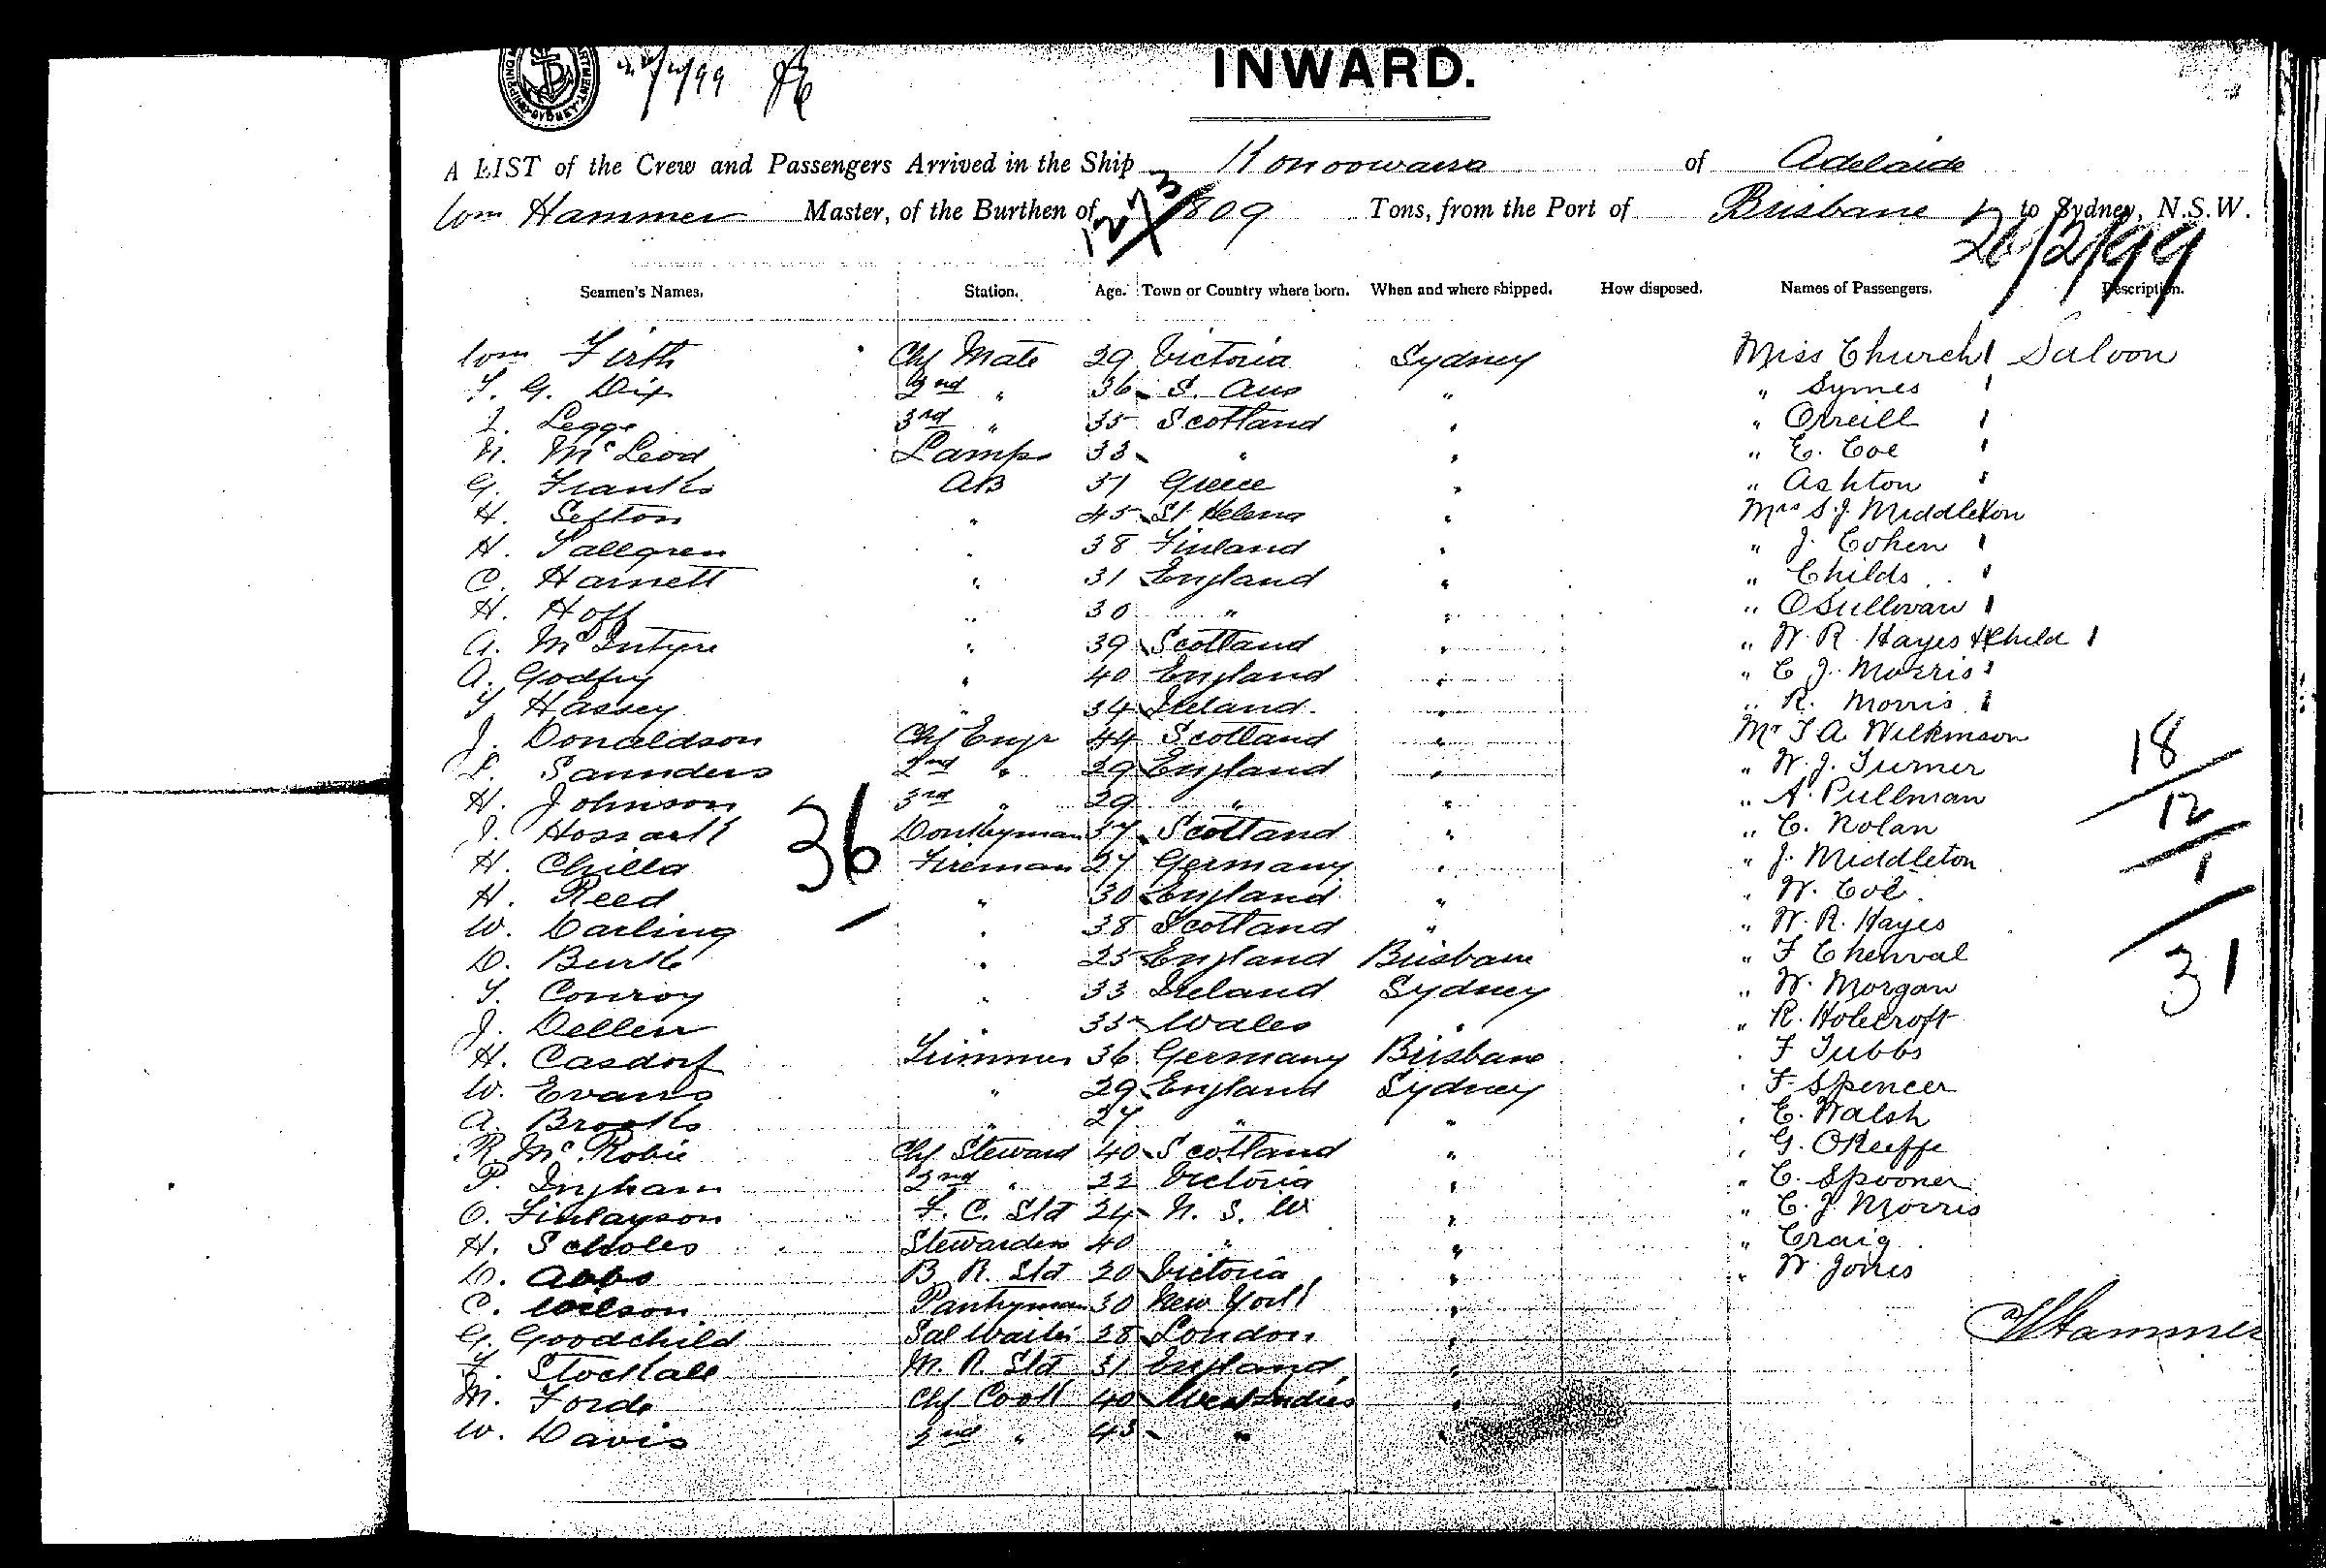 INWARD.
A LIST of the Crew and Passengers Arrived in the Ship Konoowarra of Adelaide
Wm Hammer Master, of the Burthen of 1273/1809 Tons, from the Port of Brisbane to Sydney, N.S.W.
26/2/99
Seamen's Names. Station. Age. Town or Country where born. When and where shipped. How disposed. Names of Passengers. Description.
Wm Firth Chf Mate 29 Victoria Sydney Miss Church 1 Saloon
T. G. Dix 2nd " 36 S. Aus " " Symes 1
J. Legge 3rd " 35 Scotland " " Orreill 1
N. McLeod Lamps 33 " " " E. Coe 1
G. Franks AB 51 Greece " " Ashton 1
H. Sefton " 45 St. Helena " Mrs S. J. Middleton
H. Sallgren " 38 Finland " " J. Cohen 1
C. Harnett " 31 England " " Childs 1
H. Hoff " 30 " " " OSullivan 1
A. McIntyre " 39 Scotland " " W. R. Hayes & Child 1
A. Godfry " 40 England " " C. J. Morris 1
T. Hassey " 34 Ireland " " R. Morris 1
J. Donaldson Chf Engr 44 Scotland " Mr T. A. Wilkinson
L. Saunders 2nd " 29 England " " W. J. Turner
H. Johnson 3rd " 29 " " " A. Pullman
J. Hossack Donkeyman 37 Scotland " " C. Nolan
H. Chilla Fireman 27 Germany " " J. Middleton
H. Reed " 30 England " " W. Coe
W. Darling " 38 Scotland " " W. R. Hayes
D. Burke " 25 England Brisbane " F Chenval
T. Conroy " 33 Ireland Sydney " W. Morgan
J. Dellen " 33 Wales " " R. Holecroft
H. Casdorf Trimmer 36 Germany Brisbane " F Tubbs
W. Evans " 29 England Sydney " F. Spencer
A. Brooks " 27 " " " E. Walsh
R. McRobie Chf Steward 40 Scotland " " G. OKeeffe
P. Ingham 2nd " 22 Victoria " " C. Spooner
O. Finlayson F. C. Std 24 N. S. W " " C. J. Morris
H. Scholes Stewardess 40 " " " Craig
D. Abbs B. R. Std 20 Victoria " " W. Jones
C. Wilson Pantryman 30 New York "
G. Goodchild Sal Waiter 28 London "
F. Stockall M. R. Std 31 England "
M. Forde Chf Cook 40 West Indies "
W. Davis 2nd " 43 " "
36
18
12
1
31
Hammer